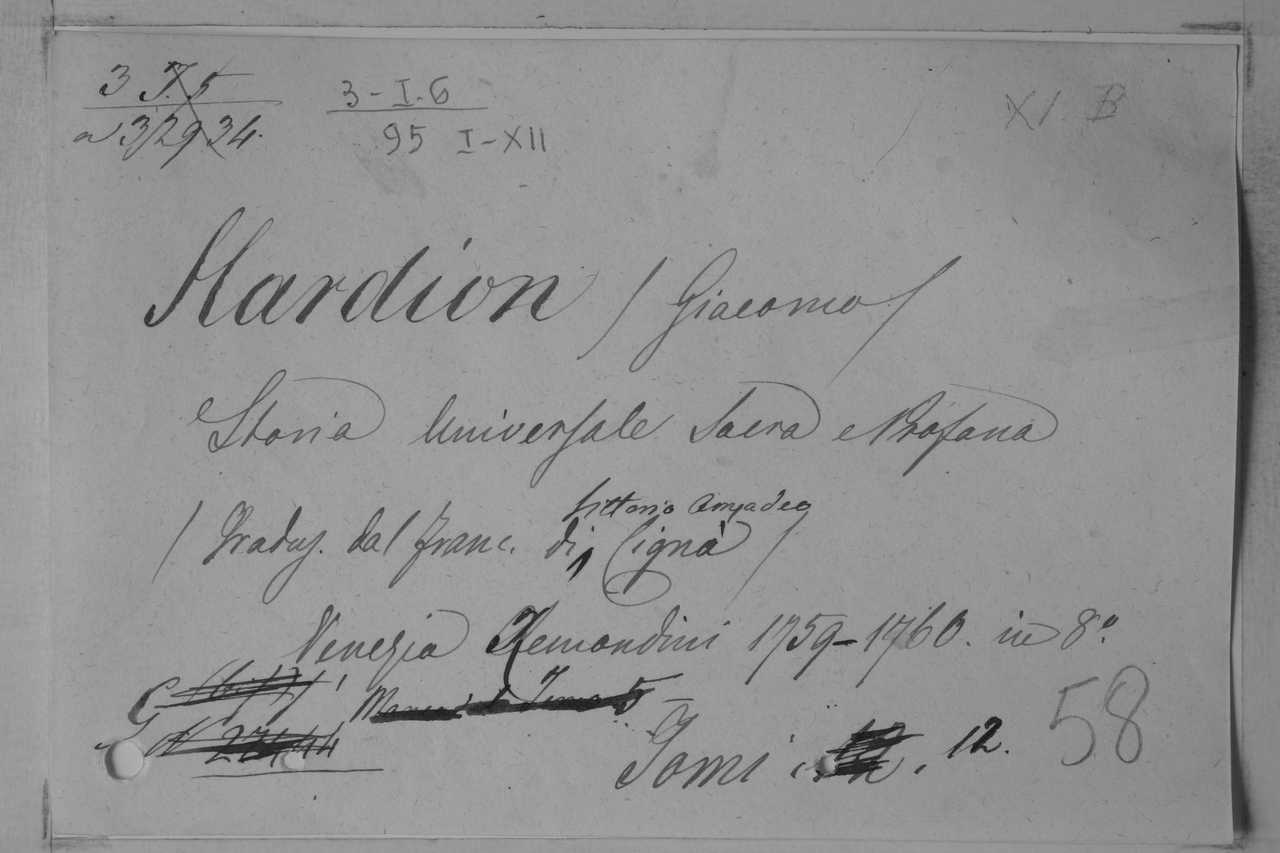 3 I. 5
a 3/29 34.
3-I.6
95 I-XII
XI B
Hardion / Giacomo /
Storia Universale Sacra e Profana
Vittorio Amadeo
/ Traduz. dal franc. di Cignà /
Venezia Remondini 1759-1760. in 8.º
Tomi 12.
58